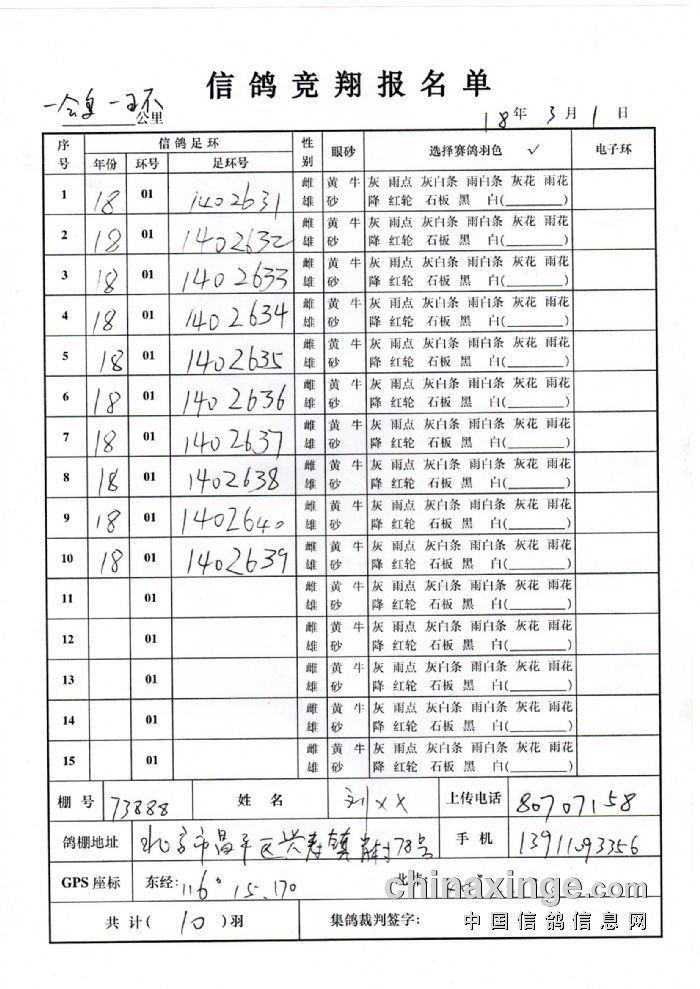 信鸽竞翔报名单
公里 18年 3月 1日
序号 信鸽足环 性别 眼砂 选择赛鸽羽色 ✓ 电子环
年份 环号 足环号
1 18 01 1402631 雌 黄 牛 灰 雨点 灰白条 雨白条 灰花 雨花
雄 砂 降 红轮 石板 黑 白(________)
2 18 01 1402632 雌 黄 牛 灰 雨点 灰白条 雨白条 灰花 雨花
雄 砂 降 红轮 石板 黑 白(________)
3 18 01 1402633 雌 黄 牛 灰 雨点 灰白条 雨白条 灰花 雨花
雄 砂 降 红轮 石板 黑 白(________)
4 18 01 1402634 雌 黄 牛 灰 雨点 灰白条 雨白条 灰花 雨花
雄 砂 降 红轮 石板 黑 白(________)
5 18 01 1402635 雌 黄 牛 灰 雨点 灰白条 雨白条 灰花 雨花
雄 砂 降 红轮 石板 黑 白(________)
6 18 01 1402636 雌 黄 牛 灰 雨点 灰白条 雨白条 灰花 雨花
雄 砂 降 红轮 石板 黑 白(________)
7 18 01 1402637 雌 黄 牛 灰 雨点 灰白条 雨白条 灰花 雨花
雄 砂 降 红轮 石板 黑 白(________)
8 18 01 1402638 雌 黄 牛 灰 雨点 灰白条 雨白条 灰花 雨花
雄 砂 降 红轮 石板 黑 白(________)
9 18 01 1402640 雌 黄 牛 灰 雨点 灰白条 雨白条 灰花 雨花
雄 砂 降 红轮 石板 黑 白(________)
10 18 01 1402639 雌 黄 牛 灰 雨点 灰白条 雨白条 灰花 雨花
雄 砂 降 红轮 石板 黑 白(________)
11 01 雌 黄 牛 灰 雨点 灰白条 雨白条 灰花 雨花
雄 砂 降 红轮 石板 黑 白(________)
12 01 雌 黄 牛 灰 雨点 灰白条 雨白条 灰花 雨花
雄 砂 降 红轮 石板 黑 白(________)
13 01 雌 黄 牛 灰 雨点 灰白条 雨白条 灰花 雨花
雄 砂 降 红轮 石板 黑 白(________)
14 01 雌 黄 牛 灰 雨点 灰白条 雨白条 灰花 雨花
雄 砂 降 红轮 石板 黑 白(________)
15 01 雌 黄 牛 灰 雨点 灰白条 雨白条 灰花 雨花
雄 砂 降 红轮 石板 黑 白(________)
棚号 73888 姓名 刘xx 上传电话 80707158
鸽棚地址 北京市昌平区兴寿镇 78号 手机 13911093356
GPS座标 东经: 116° 15.170
chinaxinge.com
共计( 10 )羽 集鸽裁判签字:
中国信鸽信息网